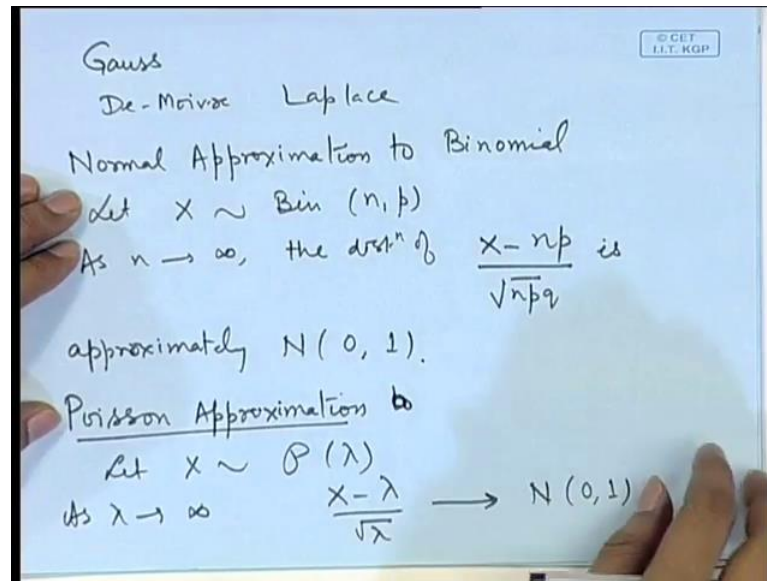 © CET
I.I.T. KGP
Gauss
De-Moivre Laplace
Normal Approximation to Binomial
Let X ~ Bin (n, p)
As n → ∞, the distⁿ of (X - np)/√npq is
approximately N(0, 1).
Poisson Approximation to
Let X ~ P(λ)
As λ → ∞ (X - λ)/√λ → N(0,1)